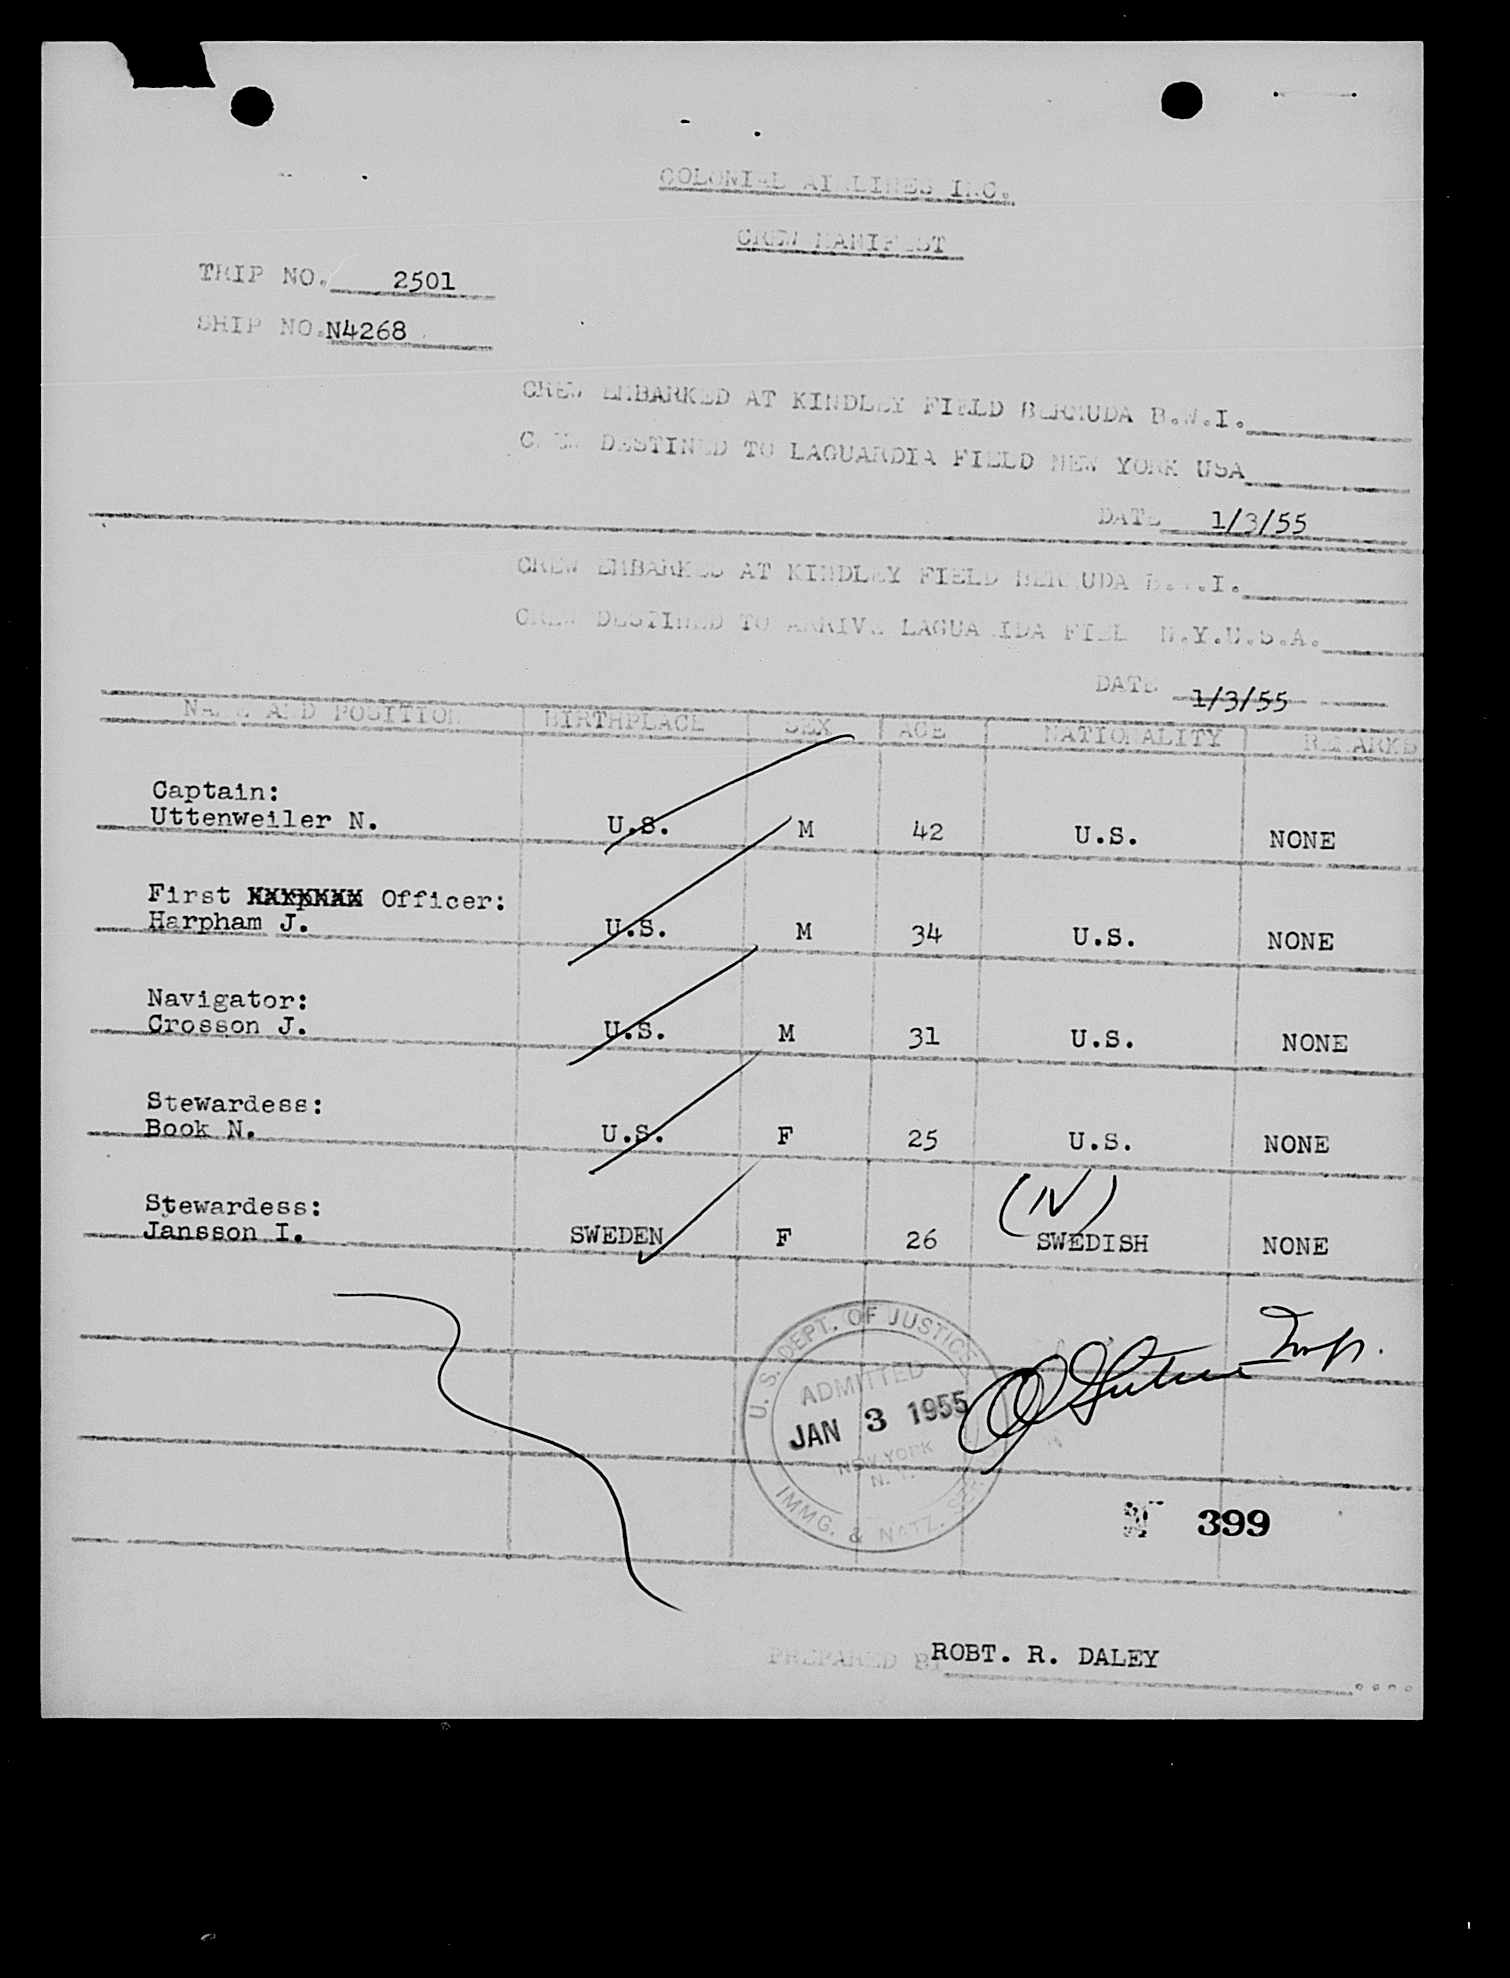 COLONIAL AIRLINES INC.
CREW MANIFEST
TRIP NO. 2501
SHIP NO. N4268
CREW EMBARKED AT KINDLEY FIELD BERMUDA B.W.I.
CREW DESTINED TO LAGUARDIA FIELD NEW YORK USA
DATE 1/3/55
CREW EMBARKED AT KINDLEY FIELD BERMUDA B.W.I.
CREW DESTINED TO ARRIVE LAGUARIDA FIELD N.Y.U.S.A.
DATE 1/3/55
NAME AND POSITION BIRTHPLACE SEX AGE NATIONALITY REMARKS
Captain:
Uttenweiler N. U.S. M 42 U.S. NONE
First Officer:
Harpham J. U.S. M 34 U.S. NONE
Navigator:
Crosson J. U.S. M 31 U.S. NONE
Stewardess:
Book N. U.S. F 25 U.S. NONE
Stewardess: (N)
Jansson I. SWEDEN F 26 SWEDISH NONE
U.S. DEPT. OF JUSTICE
ADMITTED
JAN 3 1955
NEW YORK
N. Y.
IMMG. & NATZ. SER.
399
PREPARED BY ROBT. R. DALEY